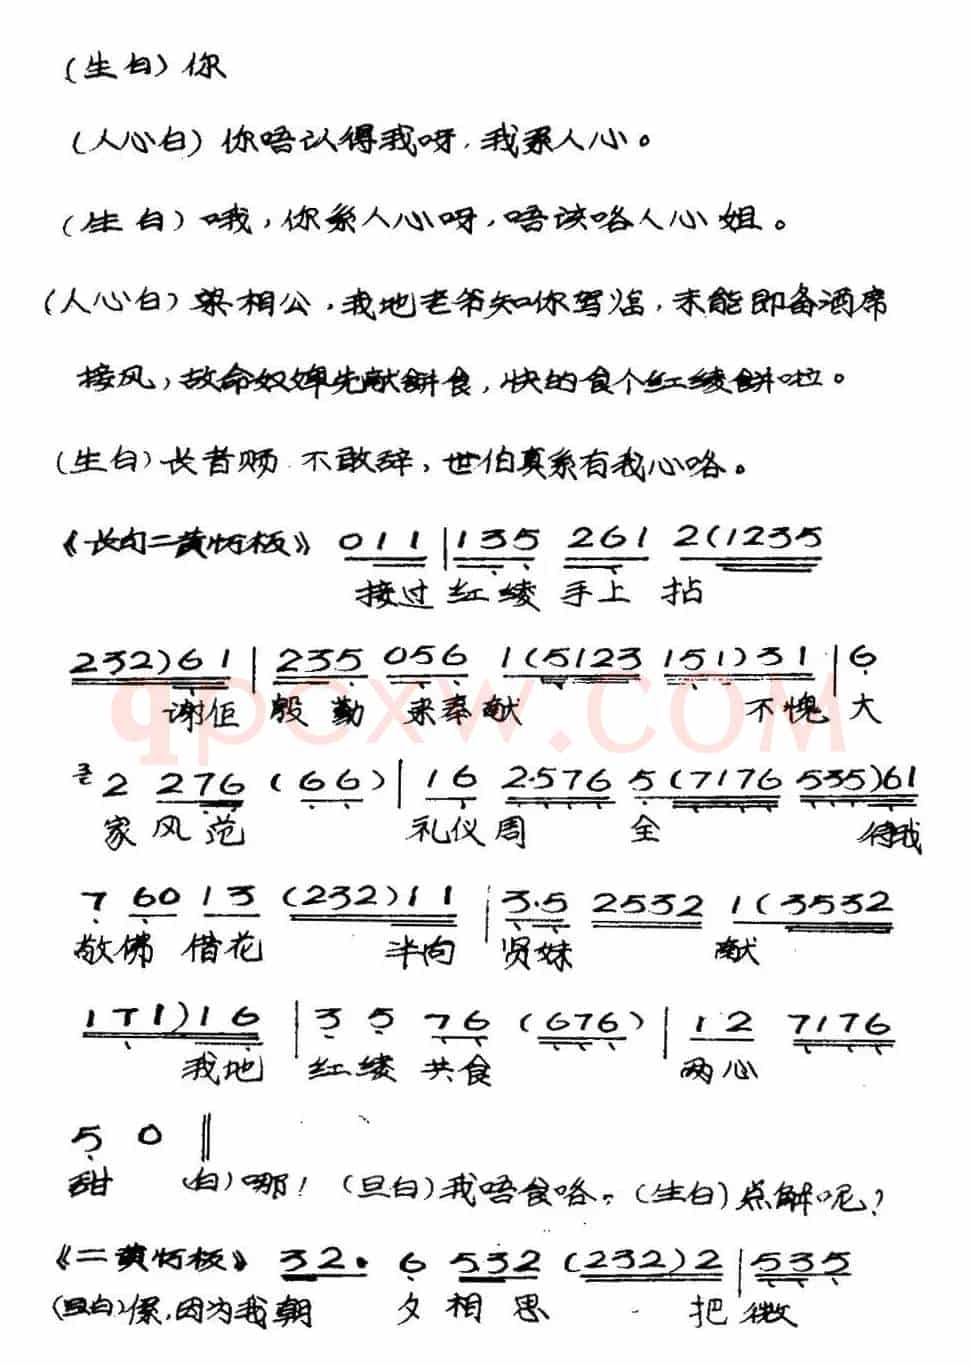 (生白)你
(人心白)你唔认得我呀,我系人心。
(生白)哦,你系人心呀,唔该咯人心姐。
(人心白)梁相公,我地老爷知你驾临,未能即备酒席
接风,故命奴婢先献饼食,快的食个红绫饼啦。
(生白)长者赐 不敢辞,世伯真系有我心咯。
《长句二黄慢板》 0 1 1 | 1 3 5 2 6 1 2 (1 2 3 5
接过 红绫 手上 拈
2 3 2) 6 1 | 2 3 5 0 5 6 1 (5 1 2 3 1 5 1) 3 1 | 6
谢佢 殷勤 来奉献 不愧 大
2 2 7 6 (6 6) | 1 6 2·5 7 6 5 (7 1 7 6 5 3 5) 6 1
家风范 礼仪周 全 待我
7 6 0 1 3 (2 3 2) 1 1 | 3·5 2 5 3 2 1 (3 5 3 2
敬佛 借花 半向 贤妹 献
1 7 1) 1 6 | 3 5 7 6 (6 7 6) | 1 2 7 1 7 6
我地 红绫 共食 两心
5 0 ‖
甜 (白)哪! (旦白)我唔食咯。(生白)点解呢?
《二黄慢板》 3 2· 6 5 3 2 (2 3 2) 2 | 5 3 5
(旦白)傒,因为我朝 夕相思 把微
qpoxw.com